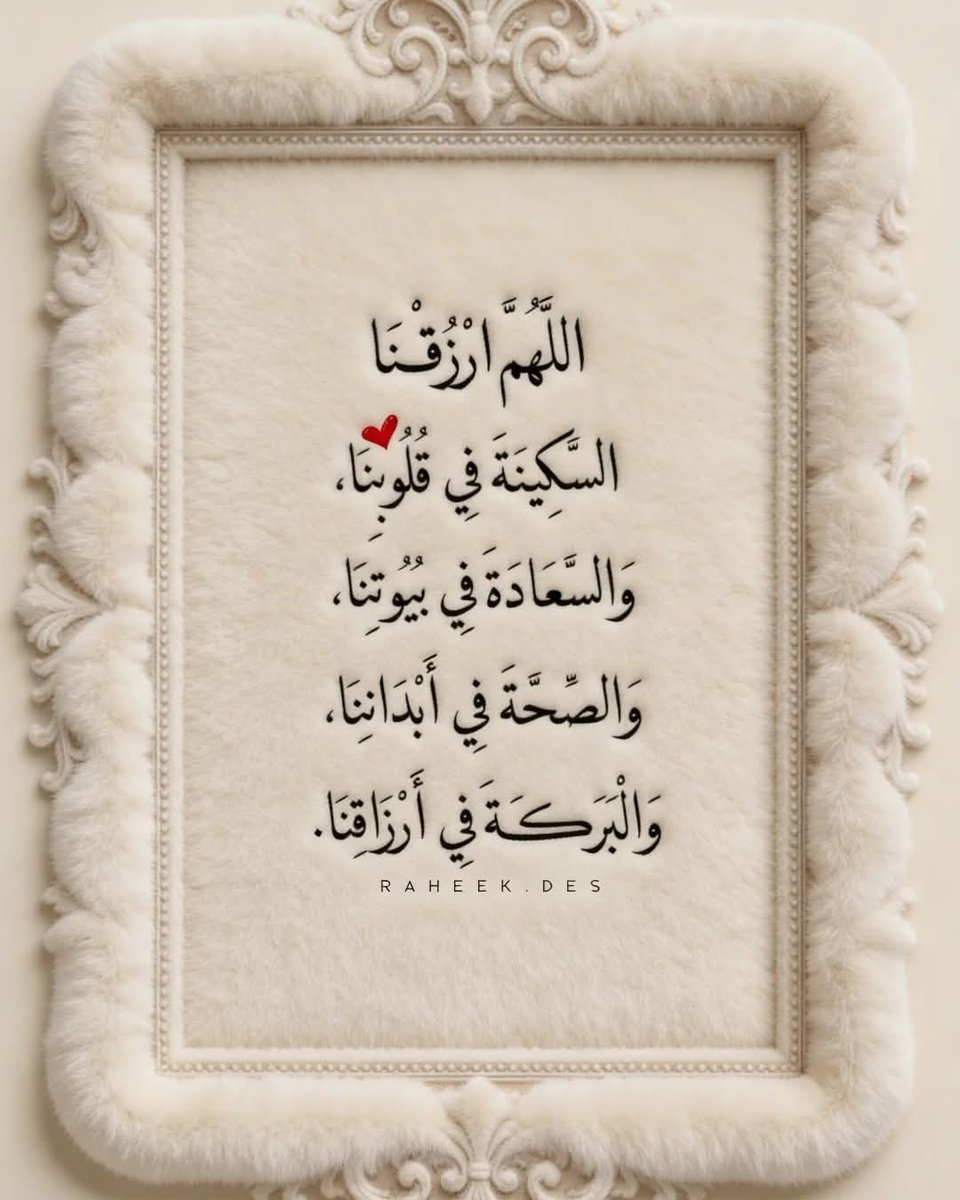 اللَّهُمَّ ارْزُقْنَا
السَّكِينَةَ فِي قُلُوبِنَا،
وَالسَّعَادَةَ فِي بُيُوتِنَا،
وَالصِّحَّةَ فِي أَبْدَانِنَا،
وَالْبَرَكَةَ فِي أَرْزَاقِنَا.
RAHEEK.DES